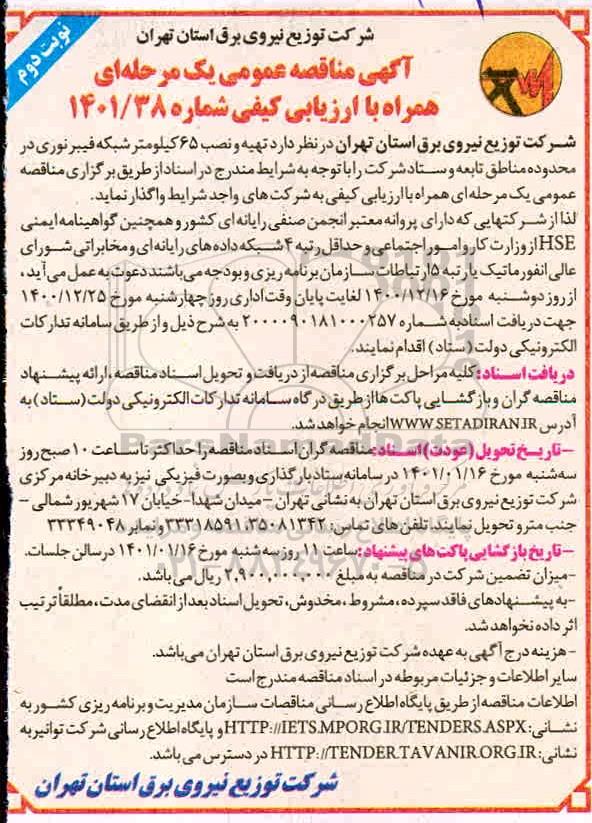 نوبت دوم
شرکت توزیع نیروی برق استان تهران
آگهی مناقصه عمومی یک مرحله‌ای
همراه با ارزیابی کیفی شماره ۱۴۰۱/۳۸
شرکت توزیع نیروی برق استان تهران در نظر دارد تهیه و نصب ۶۵ کیلومتر شبکه فیبر نوری در
محدوده مناطق تابعه و ستاد شرکت را با توجه به شرایط مندرج در اسناد از طریق برگزاری مناقصه
عمومی یک مرحله‌ای همراه با ارزیابی کیفی به شرکت های واجد شرایط واگذار نماید.
لذا از شرکتهایی که دارای پروانه معتبر انجمن صنفی رایانه ای کشور و همچنین گواهینامه ایمنی
HSE از وزارت کار و امور اجتماعی و حداقل رتبه ۴ شبکه داده های رایانه‌ای و مخابراتی شورای
عالی انفورماتیک یا رتبه ۵ ارتباطات سازمان برنامه ریزی و بودجه می باشند دعوت به عمل می آید،
از روز دوشنبه مورخ ۱۴۰۰/۱۲/۱۶ لغایت پایان وقت اداری روز چهارشنبه مورخ ۱۴۰۰/۱۲/۲۵
جهت دریافت اسناد به شماره ۲۰۰۰۰۹۰۱۸۱۰۰۰۲۵۷ به شرح ذیل و از طریق سامانه تدارکات
الکترونیکی دولت (ستاد) اقدام نمایند.
دریافت اسناد: کلیه مراحل برگزاری مناقصه از دریافت و تحویل اسناد مناقصه، ارائه پیشنهاد
مناقصه گران و بازگشایی پاکت ها از طریق درگاه سامانه تدارکات الکترونیکی دولت (ستاد) به
آدرس WWW.SETADIRAN.IR انجام خواهد شد.
-تاریخ تحویل (عودت) اسناد: مناقصه گران اسناد مناقصه را حداکثر تا ساعت ۱۰ صبح روز
سه شنبه مورخ ۱۴۰۱/۰۱/۱۶ در سامانه ستاد بارگذاری و بصورت فیزیکی نیز به دبیرخانه مرکزی
شرکت توزیع نیروی برق استان تهران به نشانی تهران - میدان شهدا - خیابان ۱۷ شهریور شمالی -
جنب مترو تحویل نمایند. تلفن های تماس: ۳۵۰۸۱۳۴۲، ۳۳۳۱۸۵۹۱ و نمابر ۳۳۳۴۹۰۴۸
-تاریخ بازگشایی پاکت های پیشنهاد: ساعت ۱۱ روز سه شنبه مورخ ۱۴۰۱/۰۱/۱۶ در سالن جلسات.
-میزان تضمین شرکت در مناقصه به مبلغ ۲,۹۰۰,۰۰۰,۰۰۰ ریال می باشد.
-به پیشنهادهای فاقد سپرده، مشروط، مخدوش، تحویل اسناد بعد از انقضای مدت، مطلقاً ترتیب
اثر داده نخواهد شد.
-هزینه درج آگهی به عهده شرکت توزیع نیروی برق استان تهران می‌باشد.
سایر اطلاعات و جزئیات مربوطه در اسناد مناقصه مندرج است
اطلاعات مناقصه از طریق پایگاه اطلاع رسانی مناقصات سازمان مدیریت و برنامه ریزی کشور به
نشانی: HTTP://IETS.MPORG.IR/TENDERS.ASPX و پایگاه اطلاع رسانی شرکت توانیر به
نشانی: HTTP://TENDER.TAVANIR.ORG.IR در دسترس می باشد.
شرکت توزیع نیروی برق استان تهران
ParsNamadData